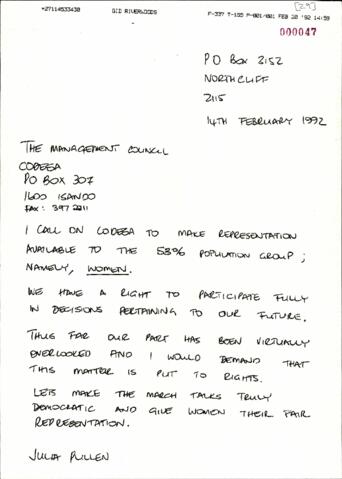 +27114533430 GID RIVERWOODS F-337 T-155 P-001/001 FEB 20 '92 14:59
[29]
000047
PO BOX 2152
NORTHCLIFF
2115
14TH FEBRUARY 1992
THE MANAGEMENT COUNCIL
CODESA
PO BOX 307
1600 ISANDO
FAX: 397 2211
I CALL ON CODESA TO MAKE REPRESENTATION
AVAILABLE TO THE 53% POPULATION GROUP;
NAMELY, WOMEN.
WE HAVE A RIGHT TO PARTICIPATE FULLY
IN DECISIONS PERTAINING TO OUR FUTURE.
THUS FAR OUR PART HAS BEEN VIRTUALLY
OVERLOOKED AND I WOULD DEMAND THAT
THIS MATTER IS PUT TO RIGHTS.
LETS MAKE THE MARCH TALKS TRULY
DEMOCRATIC AND GIVE WOMEN THEIR FAIR
REPRESENTATION.
JULIA PULLEN